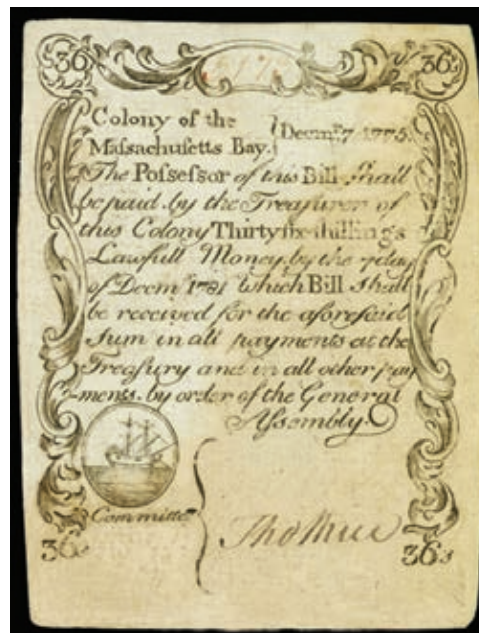 36s 36s
Colony of the
Massachusetts Bay. } Decem.r 7 1775.
The Possessor of this Bill shall
be paid by the Treasurer of
this Colony Thirty six shillings
Lawfull Money, by the 7 day
of Decem.r 1781 Which Bill shall
be received for the aforesaid
Sum in all payments at the
Treasury and in all other pay
-ments by order of the General
Assembly.
Committee
36s 36s